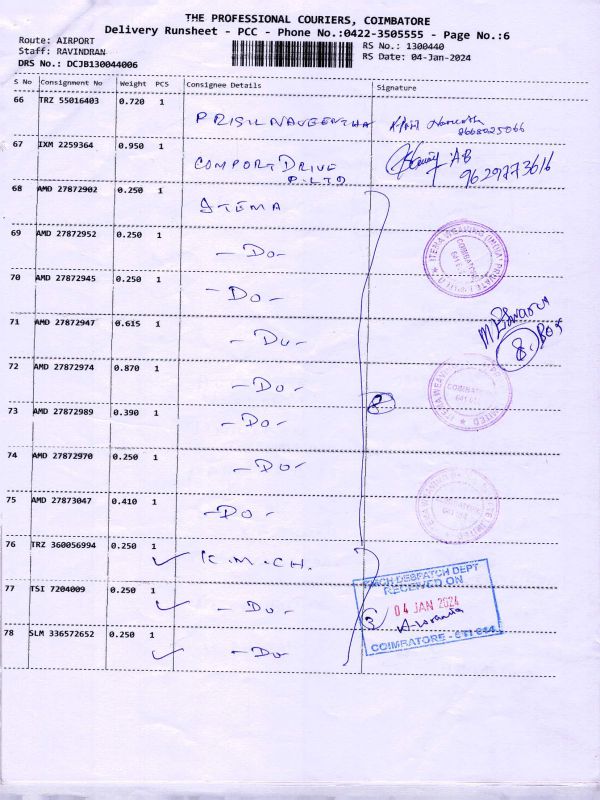 THE PROFESSIONAL COURIERS, COIMBATORE
Delivery Runsheet - PCC - Phone No.:0422-3505555 - Page No.:6
Route: AIRPORT
Staff: RAVINDRAN
DRS No.: DCJB130044006
RS No.: 1300440
RS Date: 04-Jan-2024
S No Consignment No Weight PCS Consignee Details Signature
66 TRZ 55016403 0.720 1
PRISIL NAVEENTHA
8668025066
67 IXM 2259364 0.950 1
COMPORT DRIVE
P. LTD
AB
9629773616
68 AMD 27872902 0.250 1 ITEMA
69 AMD 27872952 0.250 1 -Do-
70 AMD 27872945 0.250 1 -Do-
71 AMD 27872947 0.615 1 -Do-
8. Box
72 AMD 27872974 0.870 1 -Do-
73 AMD 27872989 0.390 1 -Do-
74 AMD 27872970 0.250 1 -Do-
75 AMD 27873047 0.410 1 -Do-
76 TRZ 360056994 0.250 1 K.M.CH.
77 TSI 7204009 0.250 1 -Do-
78 SLM 336572652 0.250 1 -Do-
ITEMA WEAVING (INDIA) PRIVATE LIMITED
COIMBATORE
KMCH DESPATCH DEPT
RECEIVED ON
3
04 JAN 2024
COIMBATORE - 641 014